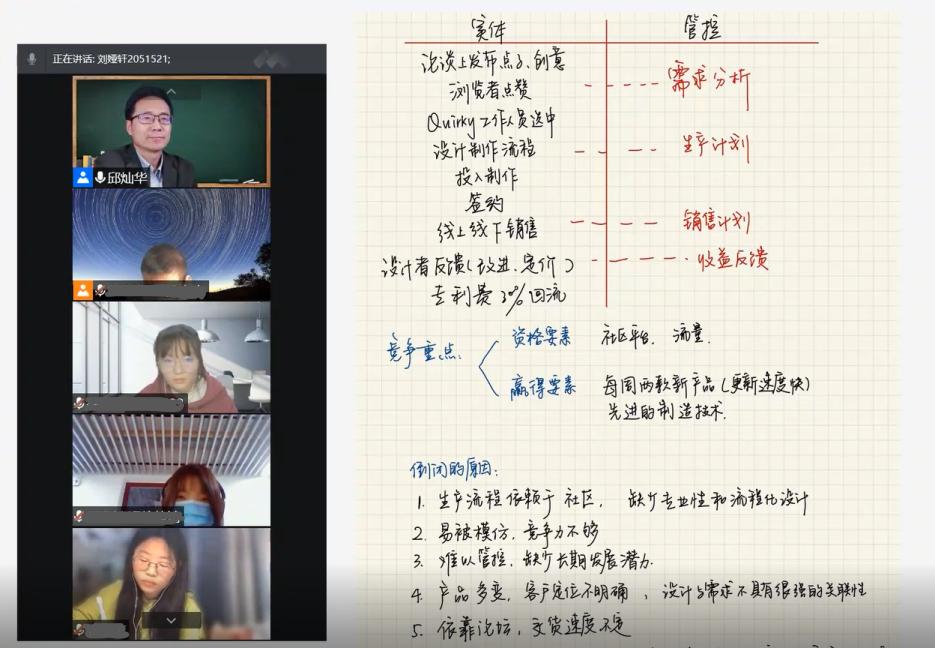 正在讲话: 刘娅轩2051521;
邱灿华
实体 管控
论谈上发布点子、创意
浏览者点赞 需求分析
Quirky工作人员选中
设计制作流程 生产计划
投入制作
签约
线上线下销售 销售计划
设计者反馈(改进、定价) 收益反馈
专利费 % 回流
竞争重点:
资格要素 社区平台、流量.
赢得要素 每周两款新产品(更新速度快)
先进的制造技术.
倒闭的原因:
1. 生产流程依赖于社区, 缺少专业性和流程化设计
2. 易被模仿, 竞争力不够
3. 难以管控, 缺少长期发展潜力.
4. 产品多变, 客户定位不明确, 设计与需求不具有很强的关联性
5. 依靠论坛, 交货速度不定